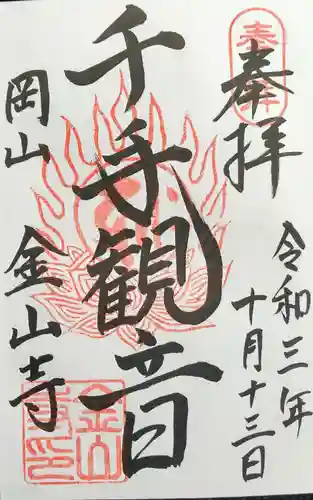 奉拝
令和三年
十月十三日
千手観音
岡山
金山寺
金山
寺印